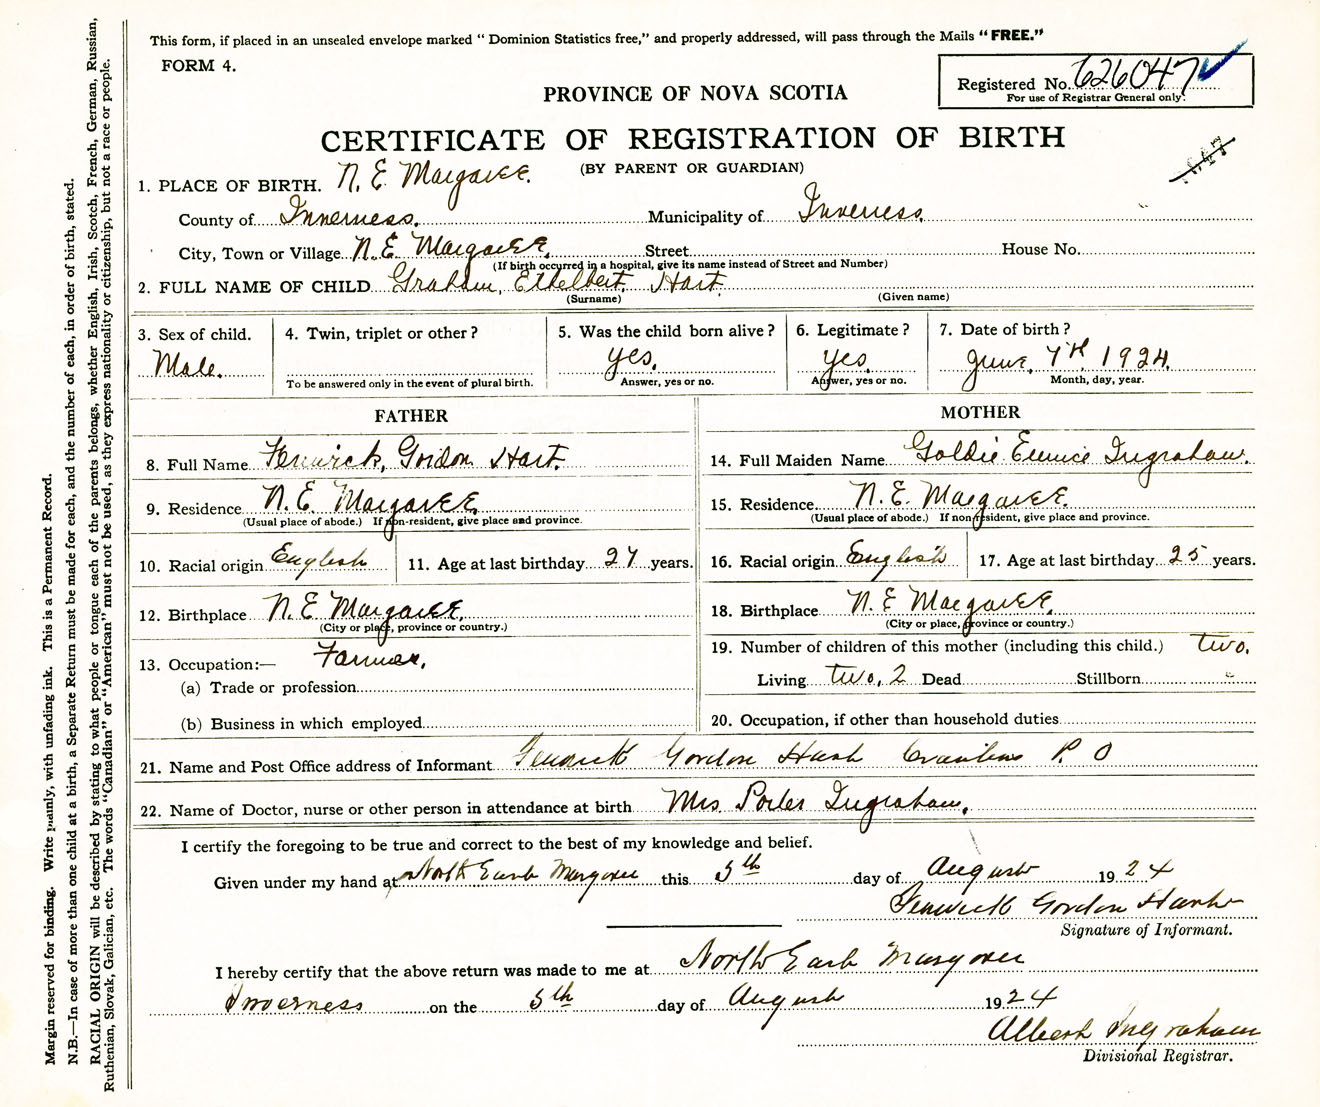 This form, if placed in an unsealed envelope marked " Dominion Statistics free," and properly addressed, will pass through the Mails "FREE."
FORM 4.
Registered No. 626047
For use of Registrar General only.
PROVINCE OF NOVA SCOTIA
CERTIFICATE OF REGISTRATION OF BIRTH
(BY PARENT OR GUARDIAN)
1. PLACE OF BIRTH. N. E. Margaree.
County of Inverness. Municipality of Inverness.
City, Town or Village N. E. Margaree. Street House No.
(If birth occurred in a hospital, give its name instead of Street and Number)
2. FULL NAME OF CHILD Graham, Ethelbert. Hart.
(Surname) (Given name)
3. Sex of child. Male.
4. Twin, triplet or other ?
To be answered only in the event of plural birth.
5. Was the child born alive ? yes.
Answer, yes or no.
6. Legitimate ? yes
Answer, yes or no.
7. Date of birth ? June, 7th, 1924.
Month, day, year.
FATHER
8. Full Name Fenwick, Gordon Hart.
9. Residence N. E. Margaree.
(Usual place of abode.) If non-resident, give place and province.
10. Racial origin English
11. Age at last birthday 27 years.
12. Birthplace N. E. Margaree.
(City or place, province or country.)
13. Occupation:— Farmer.
(a) Trade or profession
(b) Business in which employed
MOTHER
14. Full Maiden Name Goldie Eunice Ingraham.
15. Residence N. E. Margaree.
(Usual place of abode.) If non-resident, give place and province.
16. Racial origin English
17. Age at last birthday 25 years.
18. Birthplace N. E. Margaree.
(City or place, province or country.)
19. Number of children of this mother (including this child.) two.
Living two, 2 Dead Stillborn
20. Occupation, if other than household duties
21. Name and Post Office address of Informant Fenwick Gordon Hart P. O
22. Name of Doctor, nurse or other person in attendance at birth Mrs Ingraham.
I certify the foregoing to be true and correct to the best of my knowledge and belief.
Given under my hand at North East Margaree this 5th day of August 1924
Fenwick Gordon Hart
Signature of Informant.
I hereby certify that the above return was made to me at North East Margaree
Inverness on the 5th day of August 1924
Albert Ingraham
Divisional Registrar.
Margin reserved for binding. Write plainly, with unfading ink. This is a Permanent Record.
N.B.—In case of more than one child at a birth, a Separate Return must be made for each, and the number of each, in order of birth, stated.
RACIAL ORIGIN will be described by stating to what people or tongue each of the parents belongs, whether English, Irish, Scotch, French, German, Russian,
Ruthenian, Slovak, Galician, etc. The words "Canadian" or "American" must not be used, as they express nationality or citizenship, but not a race or people.